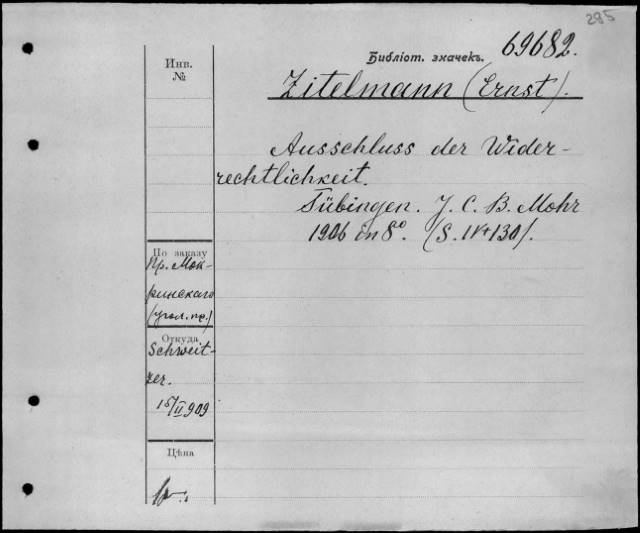 295
Инв.
№
Библіот. значекъ. 69682.
Zitelmann (Ernst).
Ausschluss der Wider-
rechtlichkeit.
Tübingen. J. C. B. Mohr
1906 in 8°. (S. IV+130).
По заказу
Пр. Мок-
ринскаго
(угол. пр.)
Откуда
Schweit-
zer.
15/II 909
Цѣна